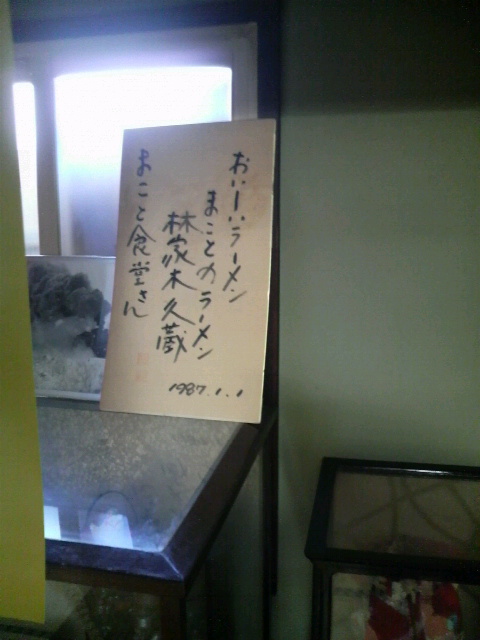 おいーいラーメン
まことのラーメン
林家木久蔵
まこと食堂さん
1987.1.1